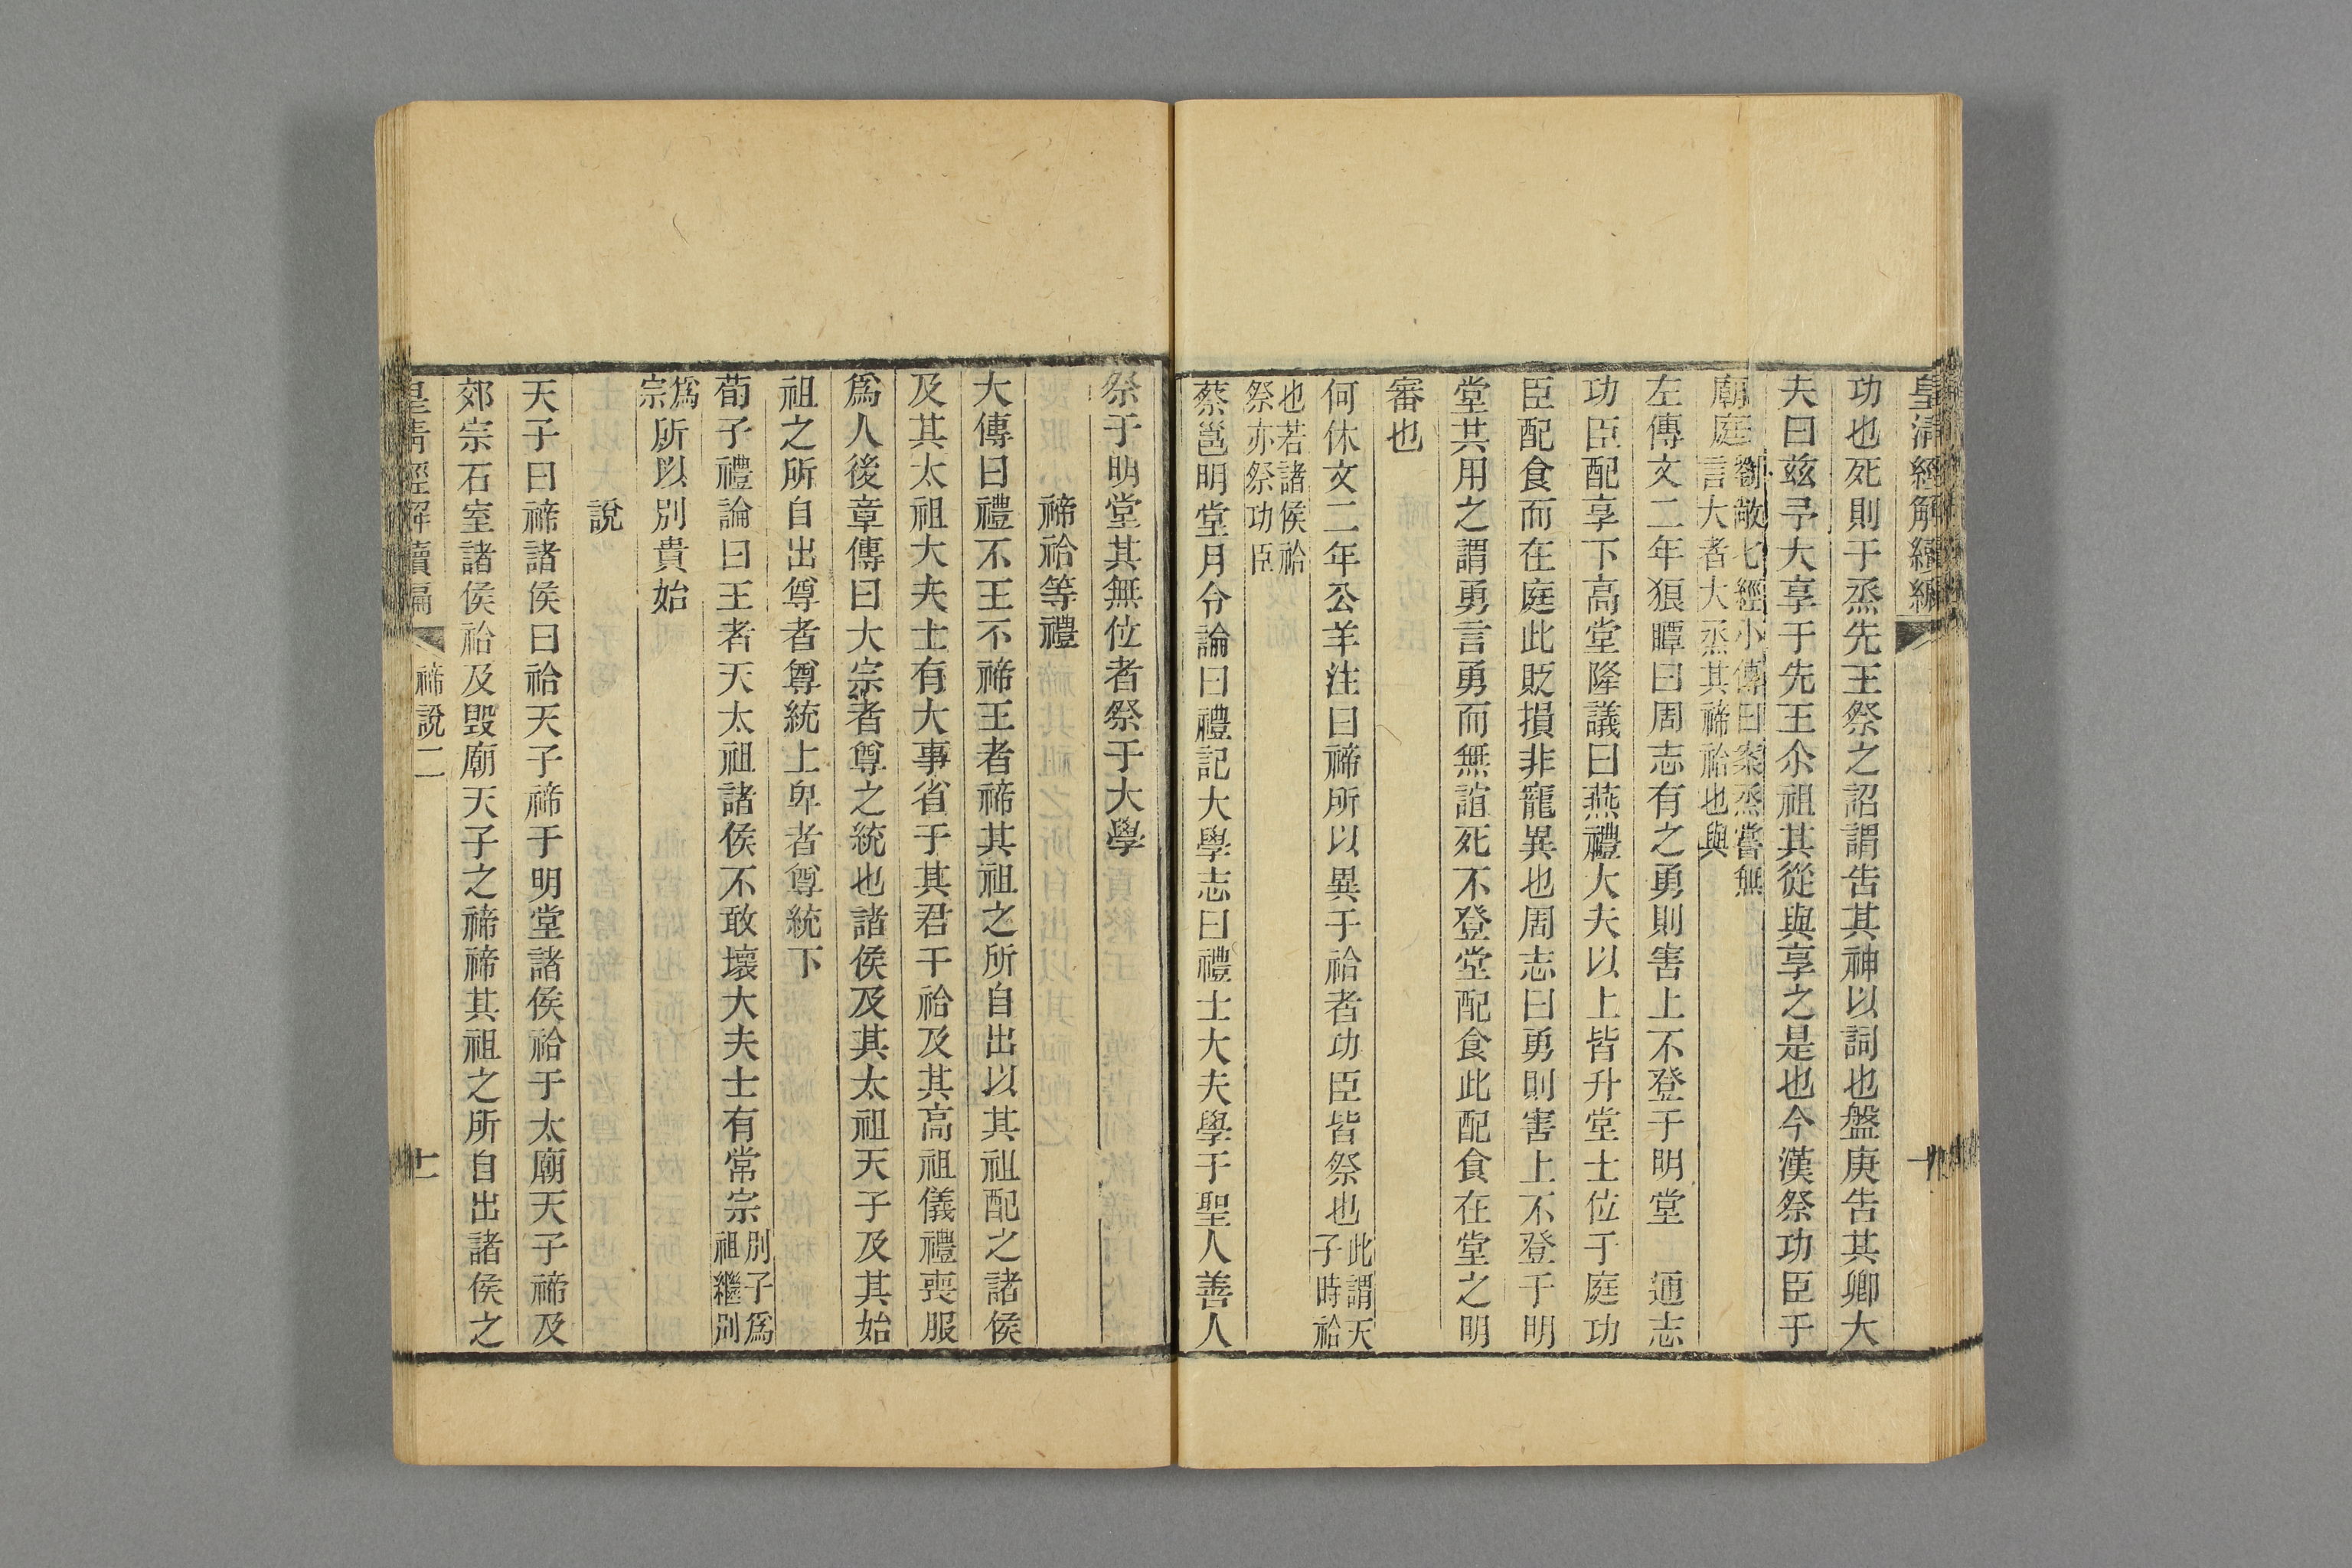 皇清經解續編
功也死則于烝先王祭之詔謂告其神以詞也盤庚告其卿大
夫曰茲予大享于先王尒祖其從與享之是也今漢祭功臣于
廟庭劉敞七經小傳曰案烝嘗無
言大者大烝其禘祫也與
左傳文二年狼瞫曰周志有之勇則害上不登于明堂　通志
功臣配享下高堂隆議曰燕禮大夫以上皆升堂士位于庭功
臣配食而在庭此貶損非寵異也周志曰勇則害上不登于明
堂共用之謂勇言勇而無誼死不登堂配食此配食在堂之明
審也
何休文二年公羊注曰禘所以異于祫者功臣皆祭也此謂天
子時祫
也若諸侯祫
祭亦祭功臣
蔡邕明堂月令論曰禮記大學志曰禮士大夫學于聖人善人
祭于明堂其無位者祭于大學
禘祫等禮
大傳曰禮不王不禘王者禘其祖之所自出以其祖配之諸侯
及其太祖大夫士有大事省于其君干祫及其高祖儀禮喪服
爲人後章傳曰大宗者尊之統也諸侯及其太祖天子及其始
祖之所自出尊者尊統上卑者尊統下
荀子禮論曰王者天太祖諸侯不敢壞大夫士有常宗別子爲
祖繼別
爲
宗所以別貴始
說
天子曰禘諸侯曰祫天子禘于明堂諸侯祫于太廟天子禘及
郊宗石室諸侯祫及毀廟天子之禘禘其祖之所自出諸侯之
皇清經解續編
禘說二